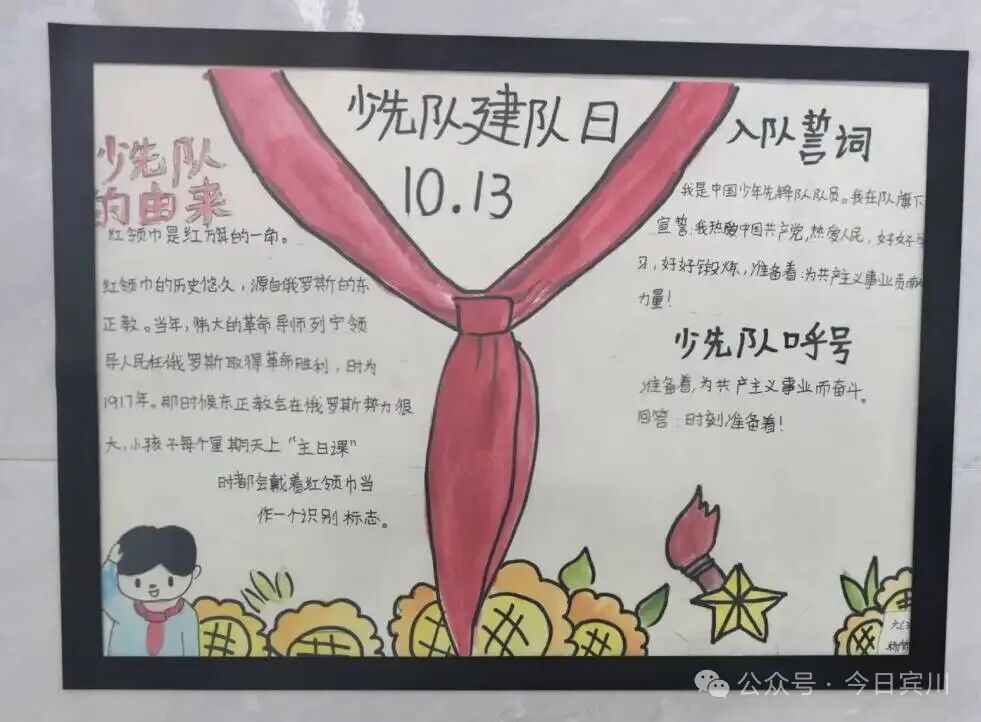 少先队建队日
10.13
少先队
的由来
红领巾是红旗的一角。
红领巾的历史悠久，源自俄罗斯的东
正教。当年，伟大的革命导师列宁领
导人民在俄罗斯取得革命胜利，时为
1917年。那时候东正教会在俄罗斯势力很
大，小孩子每个星期天上“主日课”
时都会戴着红领巾当
作一个识别标志。
入队誓词
我是中国少年先锋队队员。我在队旗下
宣誓：我热爱中国共产党，热爱人民，好好学
习，好好锻炼，准备着：为共产主义事业贡献
力量！
少先队呼号
准备着，为共产主义事业而奋斗。
回答：时刻准备着！
公众号·今日宾川